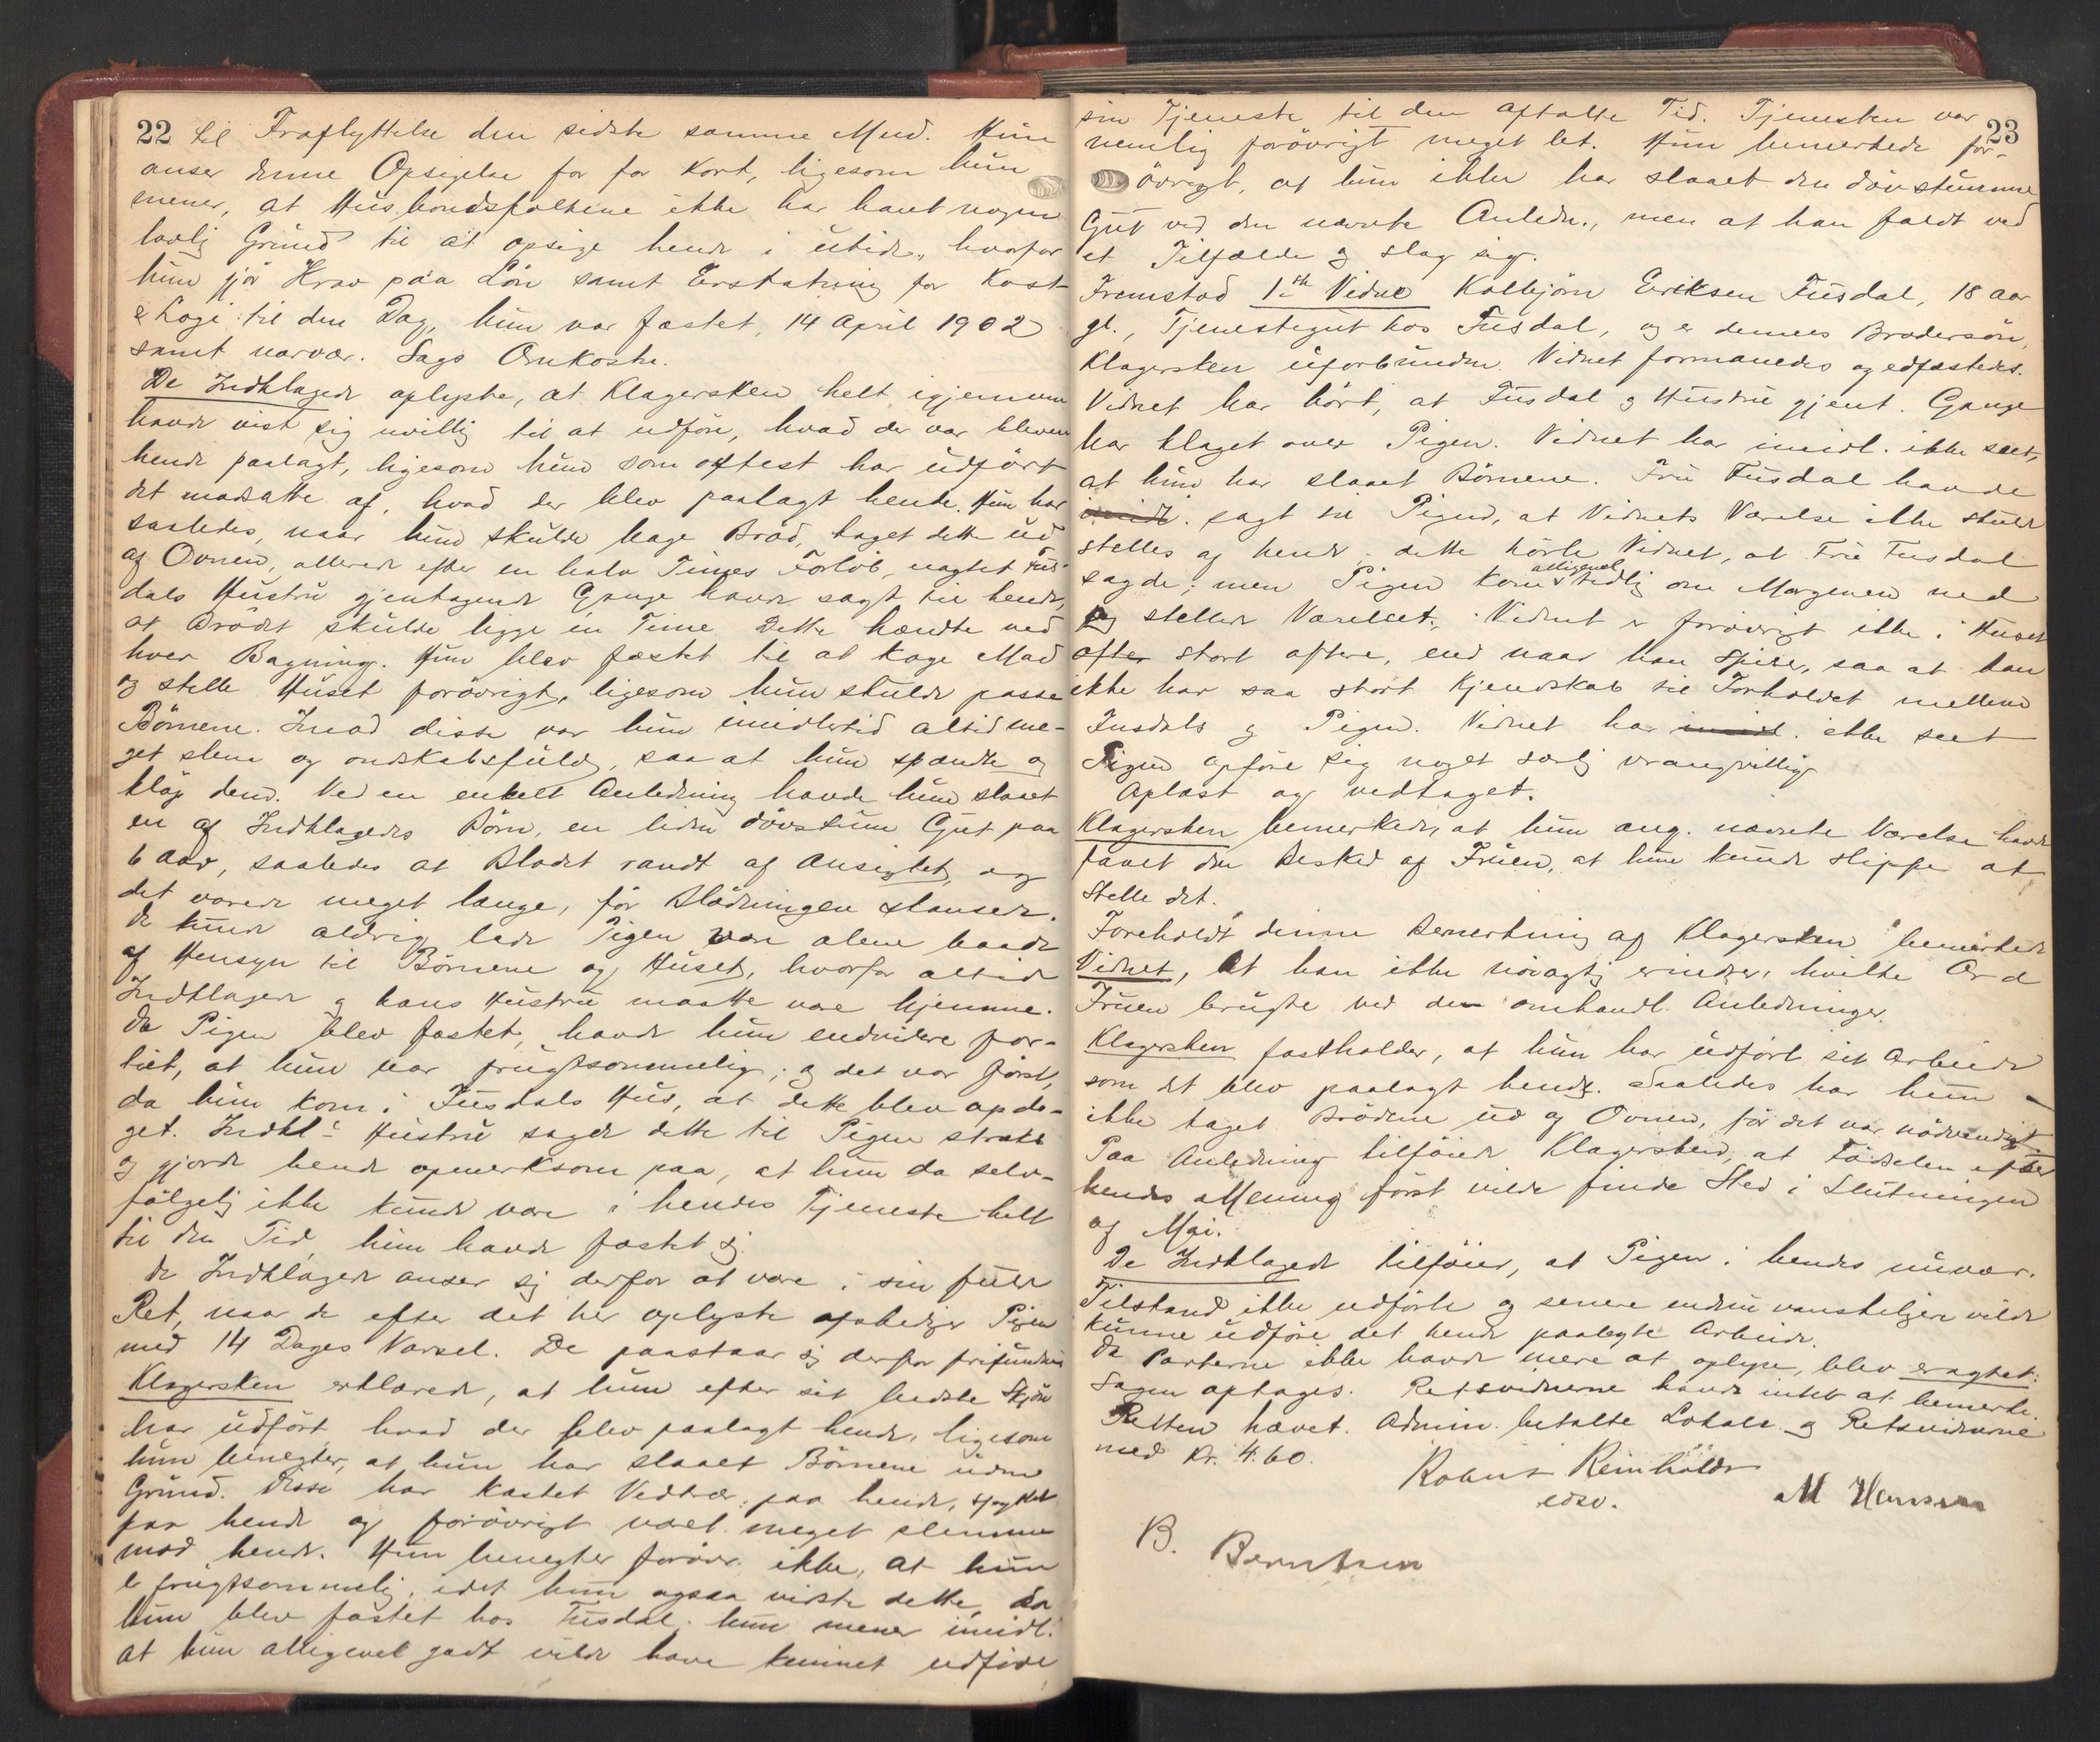 22
til Fraflyttelse den sidste samme Mnd. Hun
anser denne Opsigelse for for kort, ligesom hun
mener, at Husbondsfolkene ikke har havt nogen
lovlig Grund til at opsige hende i utide, hvorfor
hun gjør Krav paa Løn samt Erstatning for Kost
& Logi til den Dag, hun var fæstet, 14 April 1902
samt nærvær. Sags Omkostn.
De Indklagede oplyste, at Klagersken helt igjennem
havde vist sig uvillig til at udføre, hvad der var bleven
hende paalagt, ligesom hun som oftest har udført
det modsatte af, hvad der blev paalagt hende. Hun har
saaledes, naar hun skulde bage Brød, taget dette ud
af Ovnen, allerede efter en halv Times Forløb, uagtet Fus-
dals Hustru gjentagende Gange havde sagt til hende,
at Brødet skulde ligge en Time. Dette hændte ved
hver Bagning. Hun blev fæstet til at koge Mad
og stelle Huset forøvrigt, ligesom hun skulde passe
Børnene. Imod disse var hun imidlertid altid me-
get slem og ondskabsfuld, saa at hun spændte og
kløp dem. Ved en enkelt Anledning havde hun slaaet
en af Indklagedes Børn, en liden døvstum Gut paa
6 Aar, saaledes at Blodet randt af Ansigtet, og
det varede meget længe, før Blødningen stansede.
De kunde aldrig lade Pigen være alene baade
af Hensyn til Børnene og Huset, hvorfor altid
Indklagede og hans Hustru maatte være hjemme.
Da Pigen blev fæstet, havde hun endvidere for-
tiet, at hun var frugtsommelig; og det var først,
da hun kom i Fusdals Hus, at dette blev opda-
get. Indkl's Hustru sagde dette til Pigen strax
og gjorde hende opmerksom paa, at hun da selv-
følgelig ikke kunde være i hendes Tjeneste helt
til den Tid, hun havde fæstet sig.
De Indklagede anser sig derfor at være i sin fulde
Ret, naar de efter det her oplyste afskediger Pigen
med 14 Dages Varsel. De paastaar sig derfor frifundne
Klagersken erklærede, at hun efter sit bedste Skjøn
har udført hvad der blev paalagt hende, ligesom
hun benegter, at hun har slaaet Børnene uden
Grund. Disse har kastet Vedtrær paa hende, spyttet
paa hende og forøvrigt været meget slemme
mod hende. Hun benegter forøvr. ikke, at hun
er frugtsommelig, idet hun ogsaa vidste dette, da
hun blev fæstet hos Fusdal; hun mener imidl.
at hun alligevel godt vilde have kunnet udføre
23
sin Tjeneste til den aftalte Tid. Tjenesten var
nemlig forøvrigt meget let. Hun bemerkede for-
øvrigt, at hun ikke har slaaet den døvstumme
Gut ved den nævnte Anledn., men at han faldt ved
et Tilfælde og slog sig.
Fremstod 1ste Vidne Kolbjørn Eriksen Fusdal, 18 aar
gl., Tjenestegut hos Fusdal, og er dennes Brodersøn,
Klagersken uforbunden. Vidnet formanedes og edfæstedes.
Vidnet har hørt, at Fusdal og Hustru gjent. Gange
har klaget over Pigen. Vidnet har imidl. ikke seet,
at hun har slaaet Børnene. Fru Fusdal havde
imidl. sagt til Pigen, at Vidnets Værelse ikke skulde
stelles af hende; dette hørte Vidnet, at Fru Fusdal
sagde; men Pigen kom alligevel tidlig om Morgenen ned
og stellede Værelset. Vidnet er forøvrigt ikke i Huset
efter stort oftere, end naar han spiser, saa at han
ikke har saa stort Kjendskab til Forholdet mellem
Fusdals og Pigen. Vidnet har imidl. ikke seet
Pigen opføre sig noget særlig vrangvillig.
Oplæst og vedtaget.
Klagersken bemerkede, at hun ang. nævnte Værelse havde
faaet den Besked af Fruen, at hun kunde slippe at
stelle det.
Foreholdt denne Bemerkning af Klagersken bemerkede
Vidnet, at han ikke nøiagtig erindrer, hvilke Ord
Fruen brugte ved den omhandl. Anledninger.
Klagersken fastholder, at hun har udført sit Arbeide
som det blev paalagt hende. Saaledes har hun
ikke taget Brødene ud af Ovnen, før det var nødvendigt.
Paa Anledning tilføiede Klagersken, at Fødselen efter
hendes Mening først vilde finde Sted i Slutningen
af Mai.
De Indklagede tilføier, at Pigen i hendes nuvær.
Tilstand ikke udførte og senere endnu vanskeligere vilde
kunne udføre det hende paalagte Arbeide.
Da Parterne ikke havde mere at oplyse, blev eragtet:
Sagen optages. Retsvidnerne havde intet at bemerke.
Retten hævet. Admin. betalte Lokale og Retsvidnerne
med Kr. 4.60.
Robert Reinholdt
edsv.
M Hansen
B. Berntsen